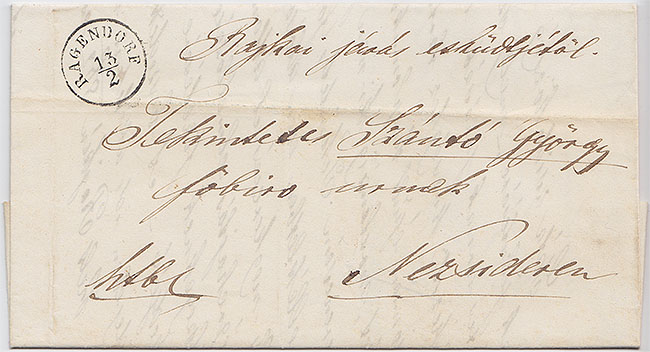 RAGENDORF
13/2
Rajkai járás esküdtjétől.
Tekintetes Szántó György
főbiro urnak
htbl Nezsideren